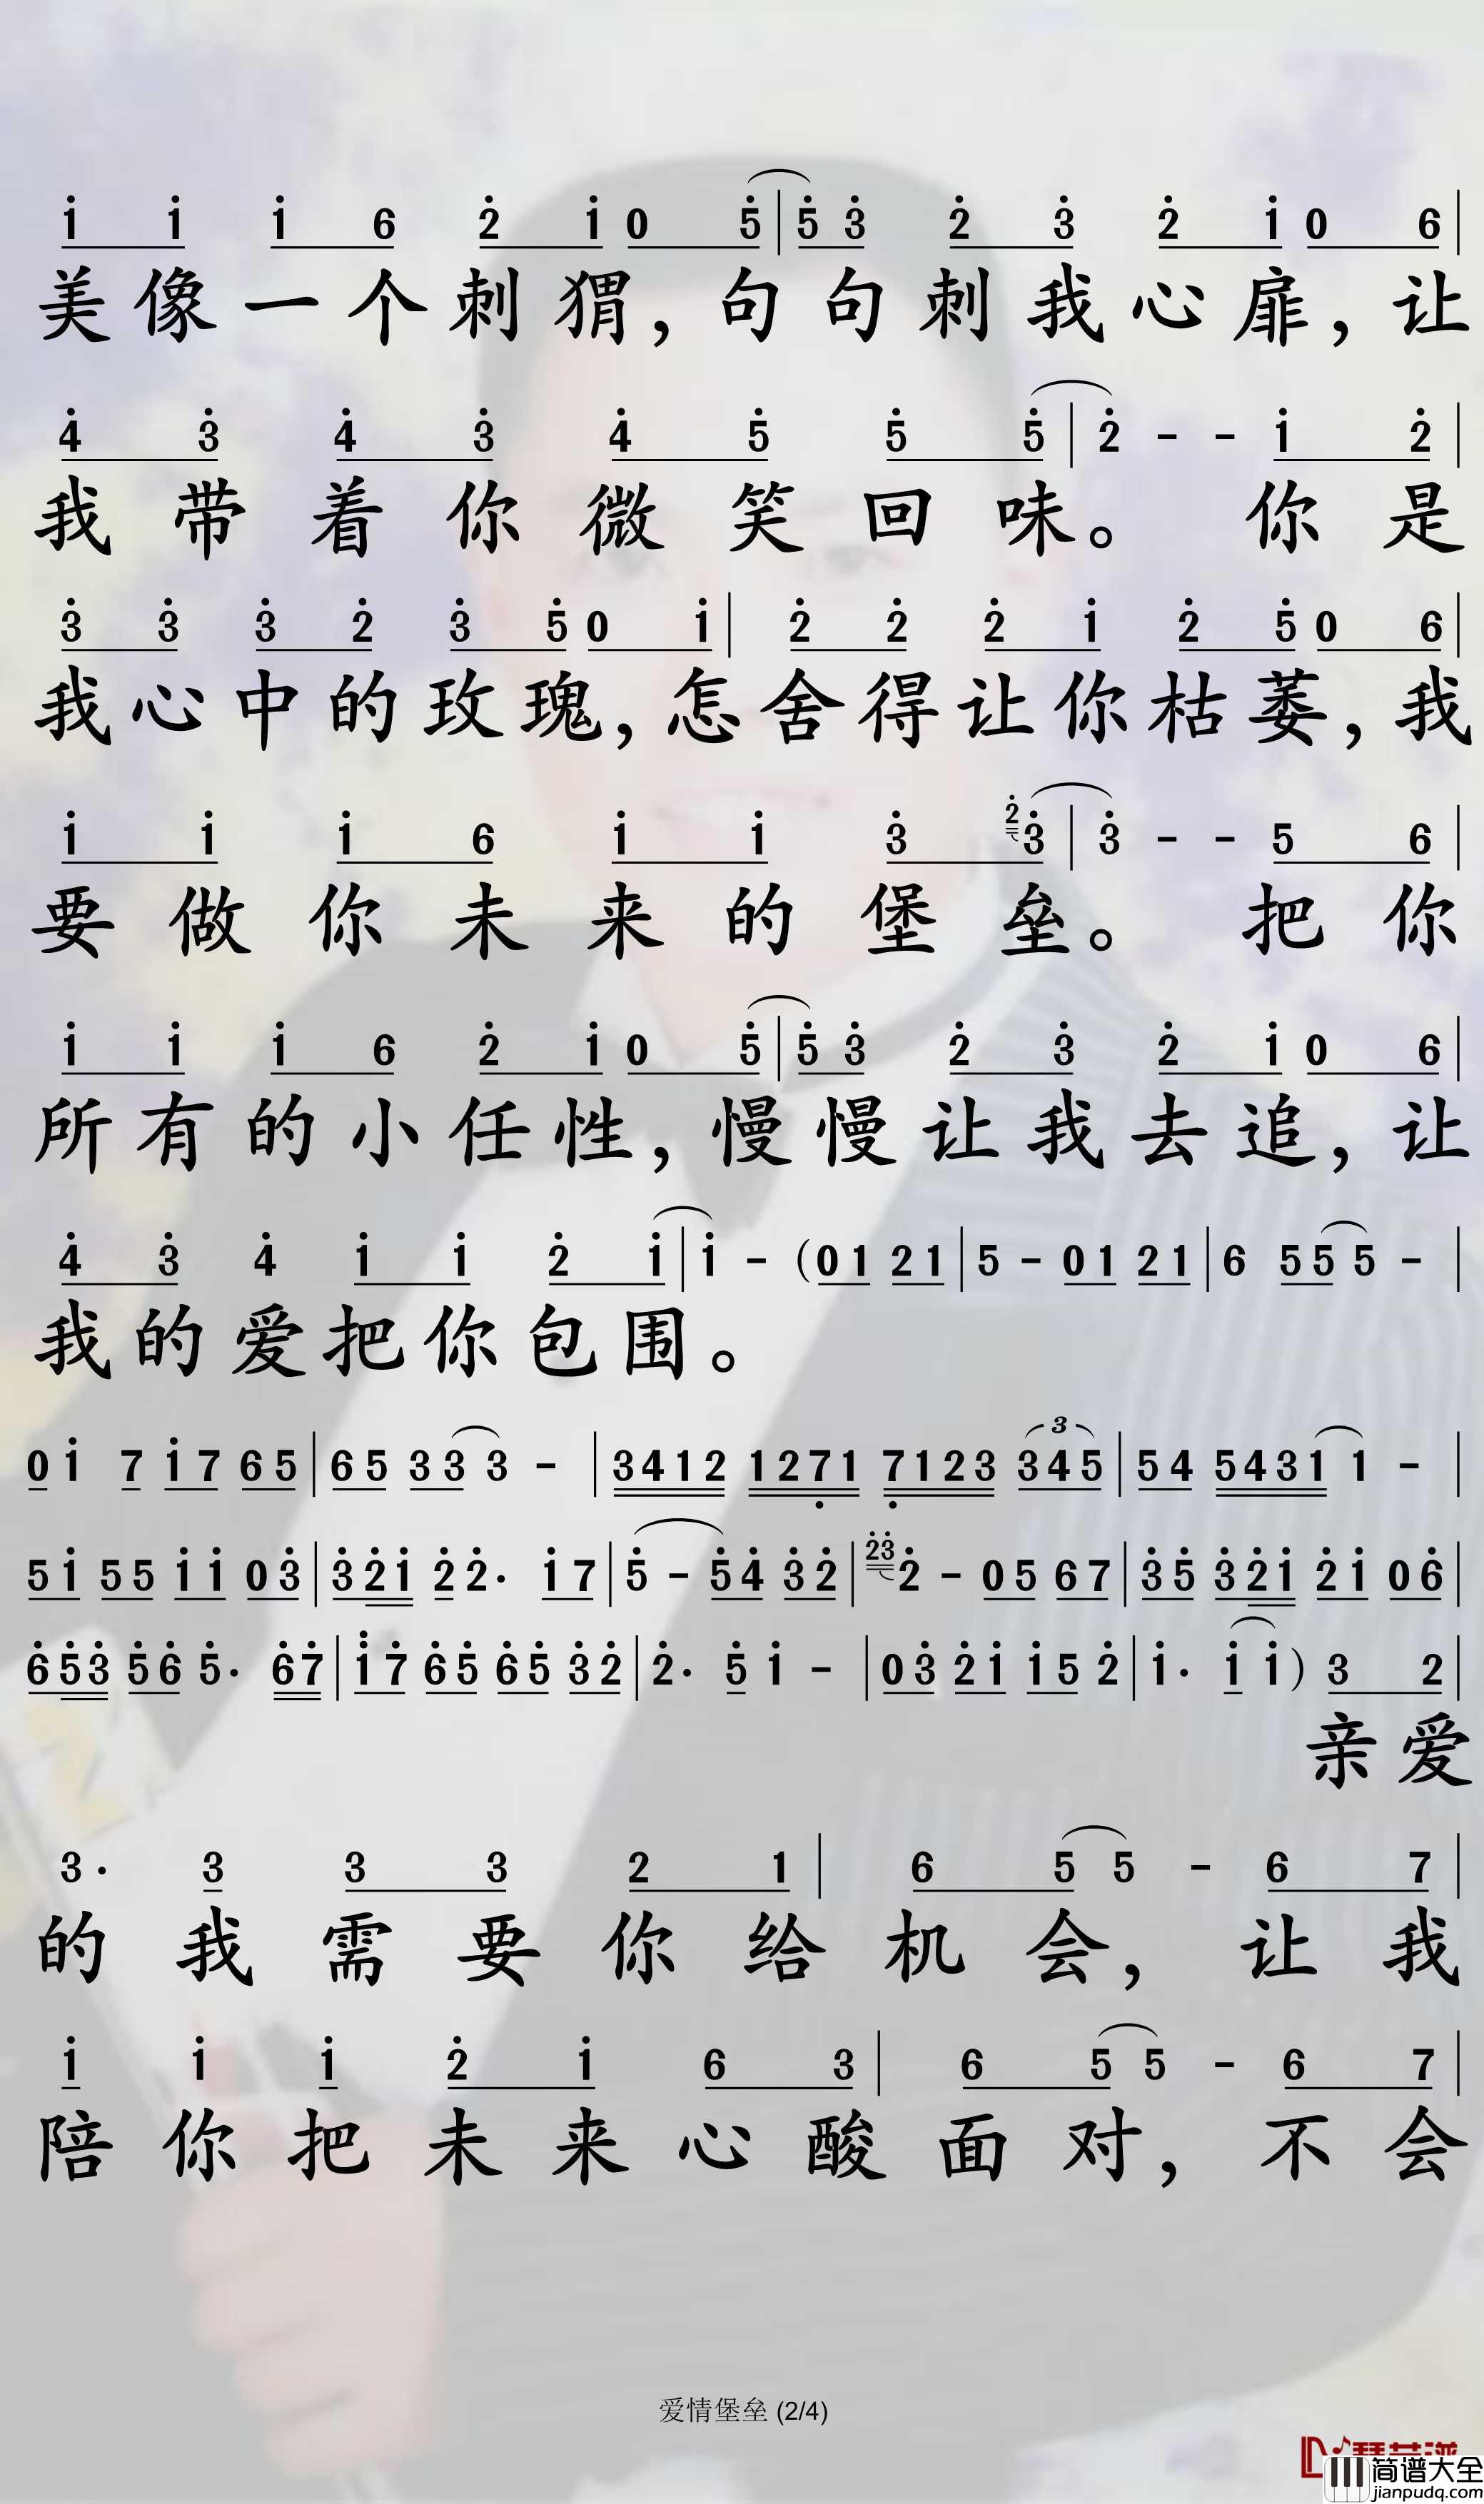 i i i 6 2 i 0 5 | 5 3 2 3 2 i 0 6 |
美像一个刺猬，句句刺我心扉，让
4 3 4 3 4 5 5 5 | 2 - - i 2 |
我带着你微笑回味。你是
3 3 3 2 3 5 0 i | 2 2 2 i 2 5 0 6 |
我心中的玫瑰，怎舍得让你枯萎，我
i i i 6 i i 3 2 3 | 3 - - 5 6 |
要做你未来的堡垒。把你
i i i 6 2 i 0 5 | 5 3 2 3 2 i 0 6 |
所有的小任性，慢慢让我去追，让
4 3 4 i i 2 i | i - (0 1 2 1 | 5 - 0 1 2 1 | 6 5 5 5 - |
我的爱把你包围。
0 i 7 i 7 6 5 | 6 5 3 3 3 - | 3 4 1 2 1 2 7 1 7 1 2 3 3 4 5 3 | 5 4 5 4 3 1 1 - |
5 i 5 5 i i 0 3 | 3 2 i 2 2· i 7 | 5 - 5 4 3 2 | 2 3 2 - 0 5 6 7 | 3 5 3 2 i 2 i 0 6 |
6 5 3 5 6 5· 6 7 | i 7 6 5 6 5 3 2 | 2· 5 i - | 0 3 2 i i 5 2 | i· i i) 3 2 |
亲爱
3· 3 3 3 2 1 | 6 5 5 - 6 7 |
的我需要你给机会，让我
i i i 2 i 6 3 | 6 5 5 - 6 7 |
陪你把未来心酸面对，不会
爱情堡垒 (2/4)
简谱大全
jianpudq.com